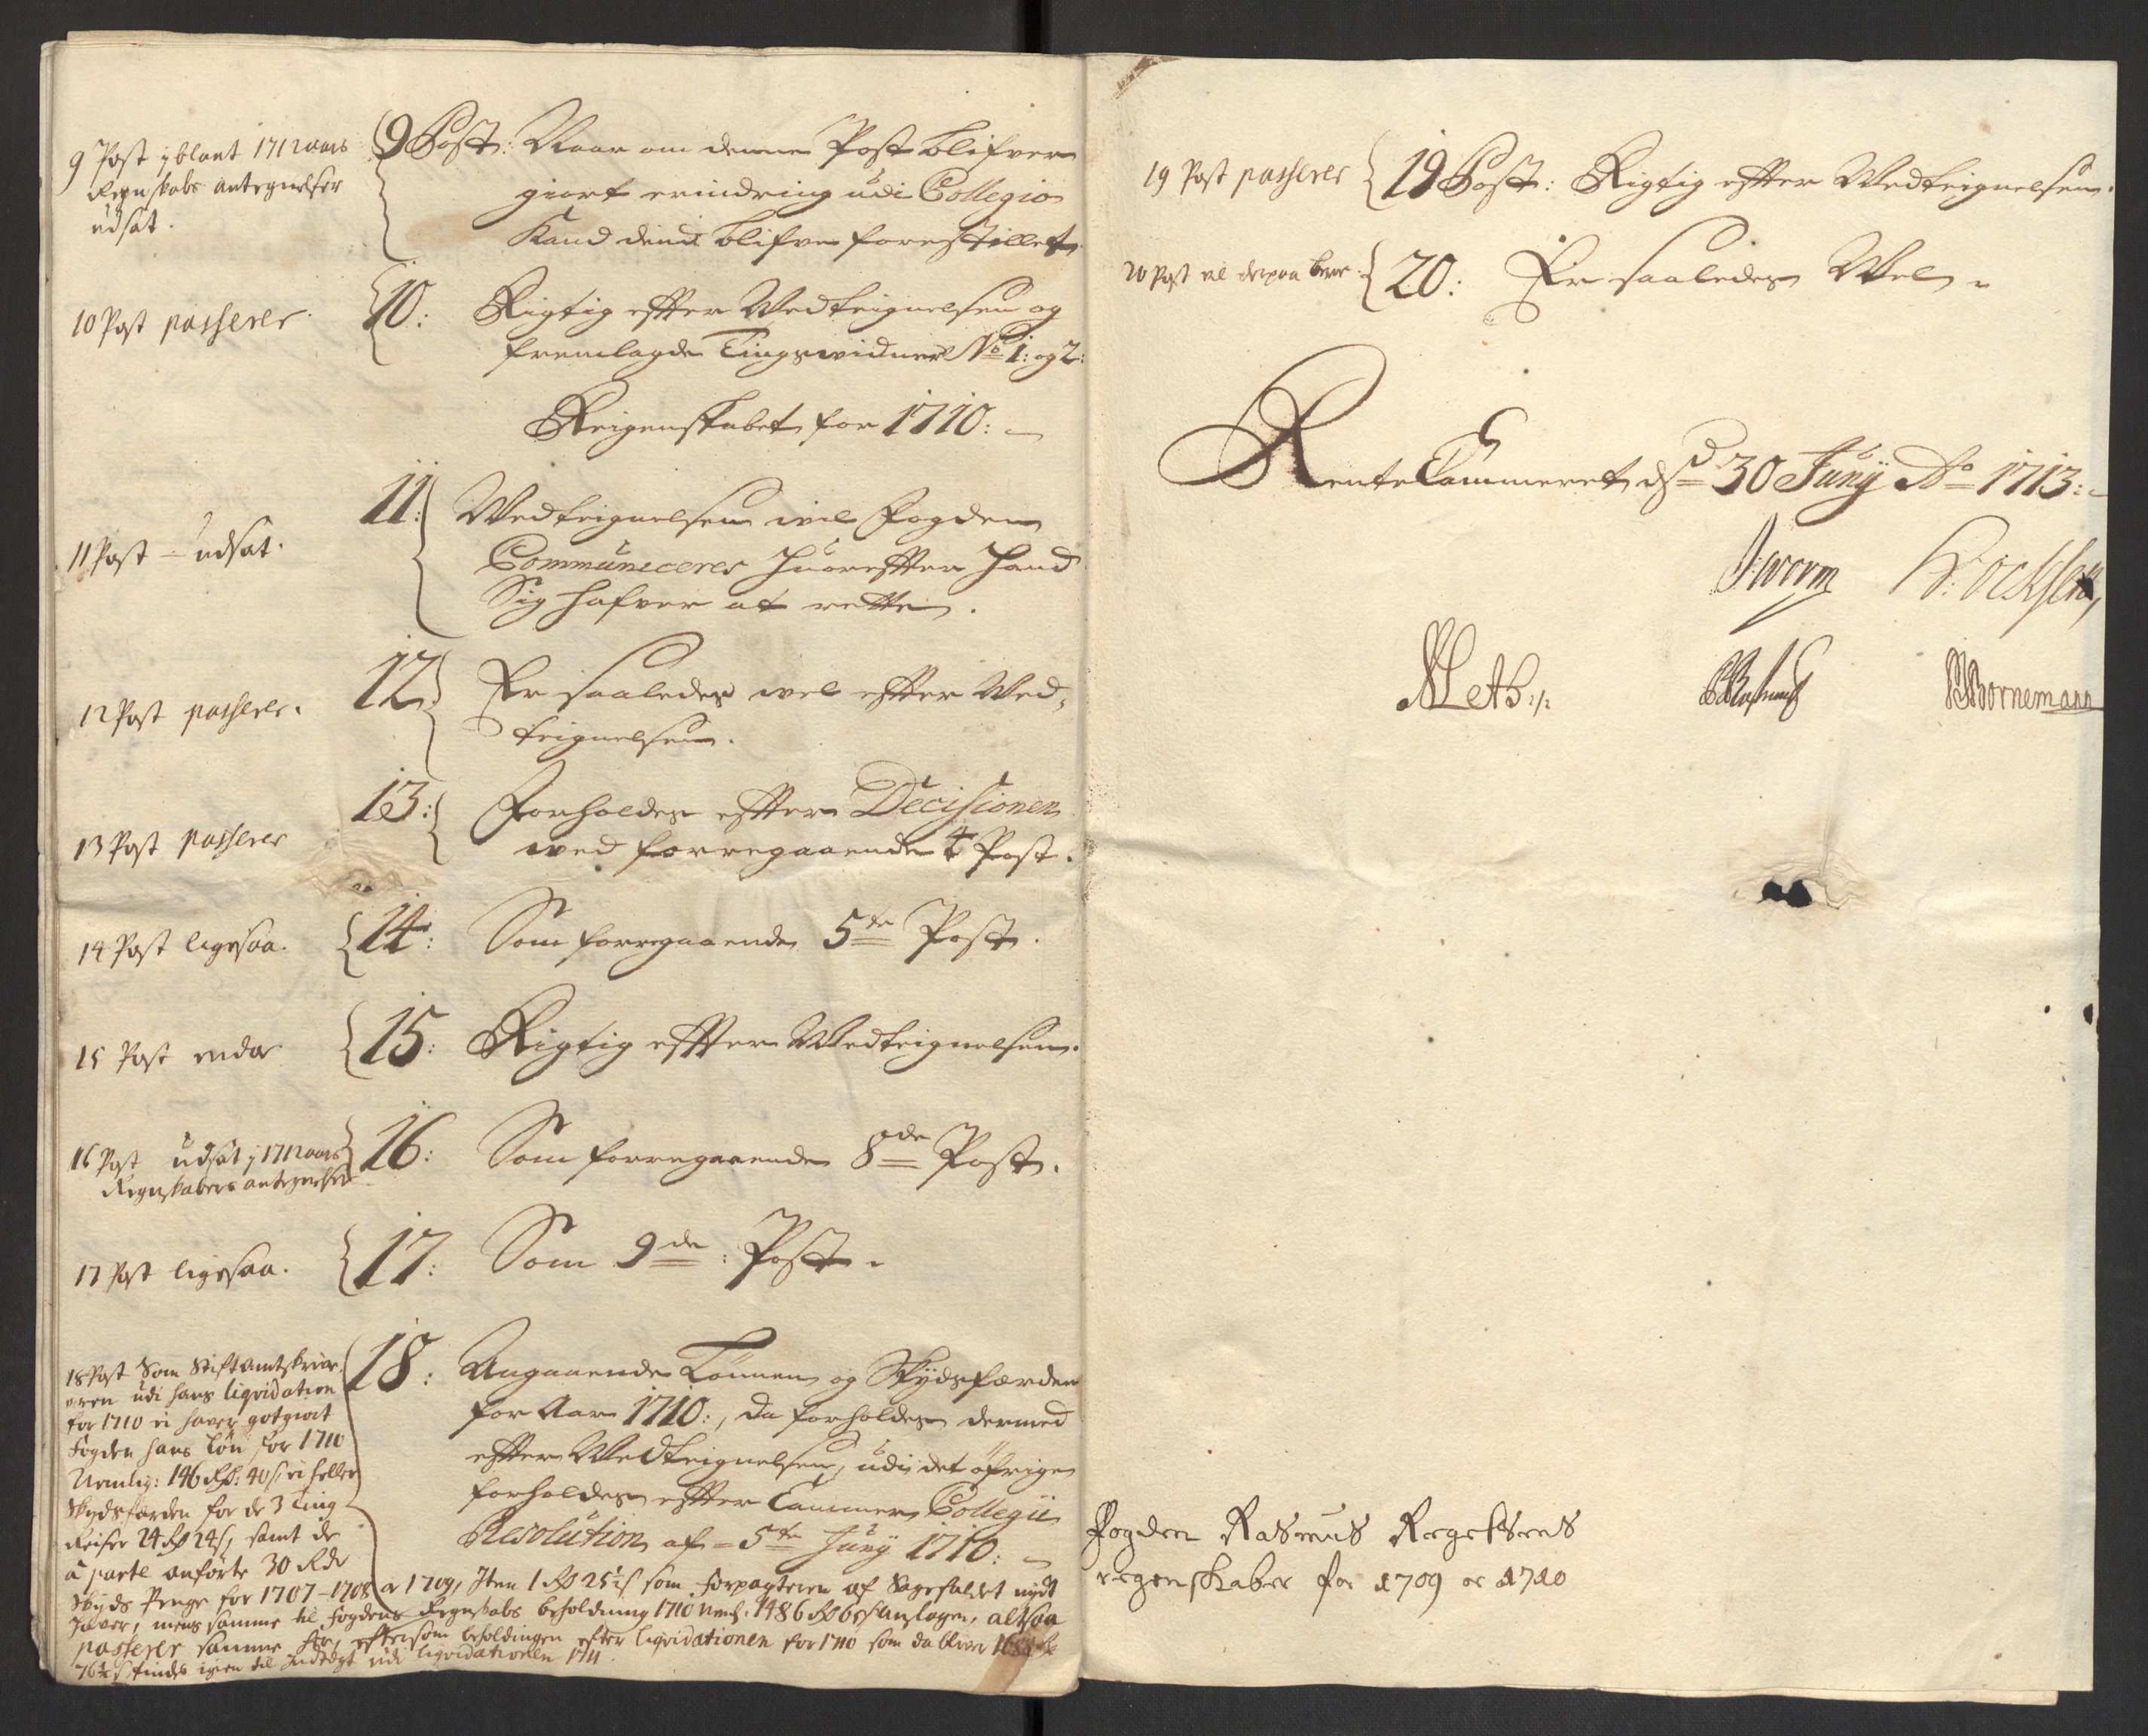 9 Post iblant 1712 aars
Regnskabs antegnelser
udsat.
9 Post: Naar om denne Post blifver
giort erindring udi Collegio
Kand dend blifve forestillet
10 Post passerer.
10: Rigtig efter Wedteignelsen og
fremlagde Tingswidner No 1: og 2:
Reigenskabet for 1710:
11 Post - udsat.
11: Wedteignelsen wil Fogden
Communiceres huorefter hand
Sig hafver at rette.
12 Post passerer.
12 Er saaledes wel efter Wed-
teignelsen.
13 Post passerer
13: Forholdes efter Decisionen
wed forregaaende 4 Post.
14 Post ligesaa.
14: Som forregaaende 5te Post.
15 Post
15: Rigtig efter Wedteignelsen.
16 Post udsat i 1712 aars
Regnskabers antegnelser
16: Som forregaaende 8de Post.
17 Post ligesaa.
17: Som 9de: Post.
18 Post Som Stiftamtskriv-
eren udi hans liqvidation
for 1710 ei haver gotgiort
Fogden hans Løn for 1710
Nemlig: 146 Rd: 40 s ei heller
Skydsfærden for de 3 Ting
Reiser 24 Rd 24 s, samt de
a parte anførte 30 Rdr
Skyds Penge for 1707-1708 a 1709, Item 1 Rd 25 1/2 s som forpagteren af Sagefaldet nydt
haver, mens samme til Fogdens Regnskabs beholdning 1710 Neml. 1486 Rd 6 s anslagen, altsaa
passerer samme her, eftersom beholdingen efter liqvidationen for 1710 som da blever
findes igien til Indtegt udi liqvidationen 1711.
18: Angaaende Lønnen og Skydsfærden
for Aar 1710:, da forholdes dermed
efter Wedteignelsen, udi det øfrige
forholdes efter Cammer Collegii
Resolution af 5te Juny 1710:
19 Post passerer
19 Post: Rigtig efter Wedteignelsen.
20 Post vel derpaa beroe.
20: Er saaledes Wel
RenteCammeret d. 30 Juny Ao 1713:
J: Worm
Meth:
BBornemann
Fogden Rasmus
regenskaber for 1709 oc 1710